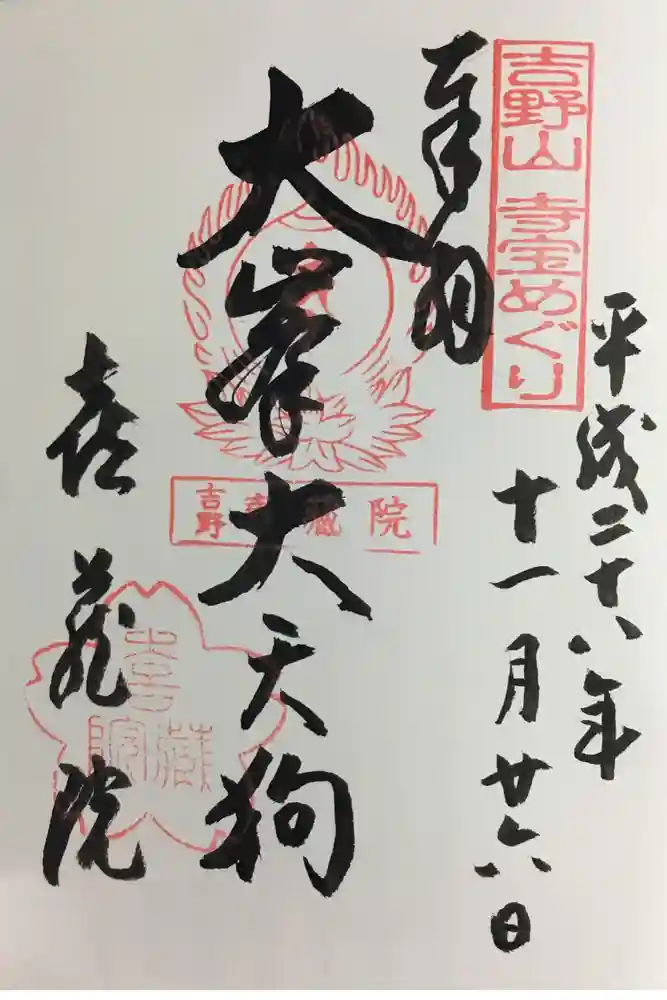 平成二十八年
十一月廿六日
吉野山 寺宝めぐり
奉拝
大峯大天狗
喜蔵院
吉野 喜蔵院
喜蔵院